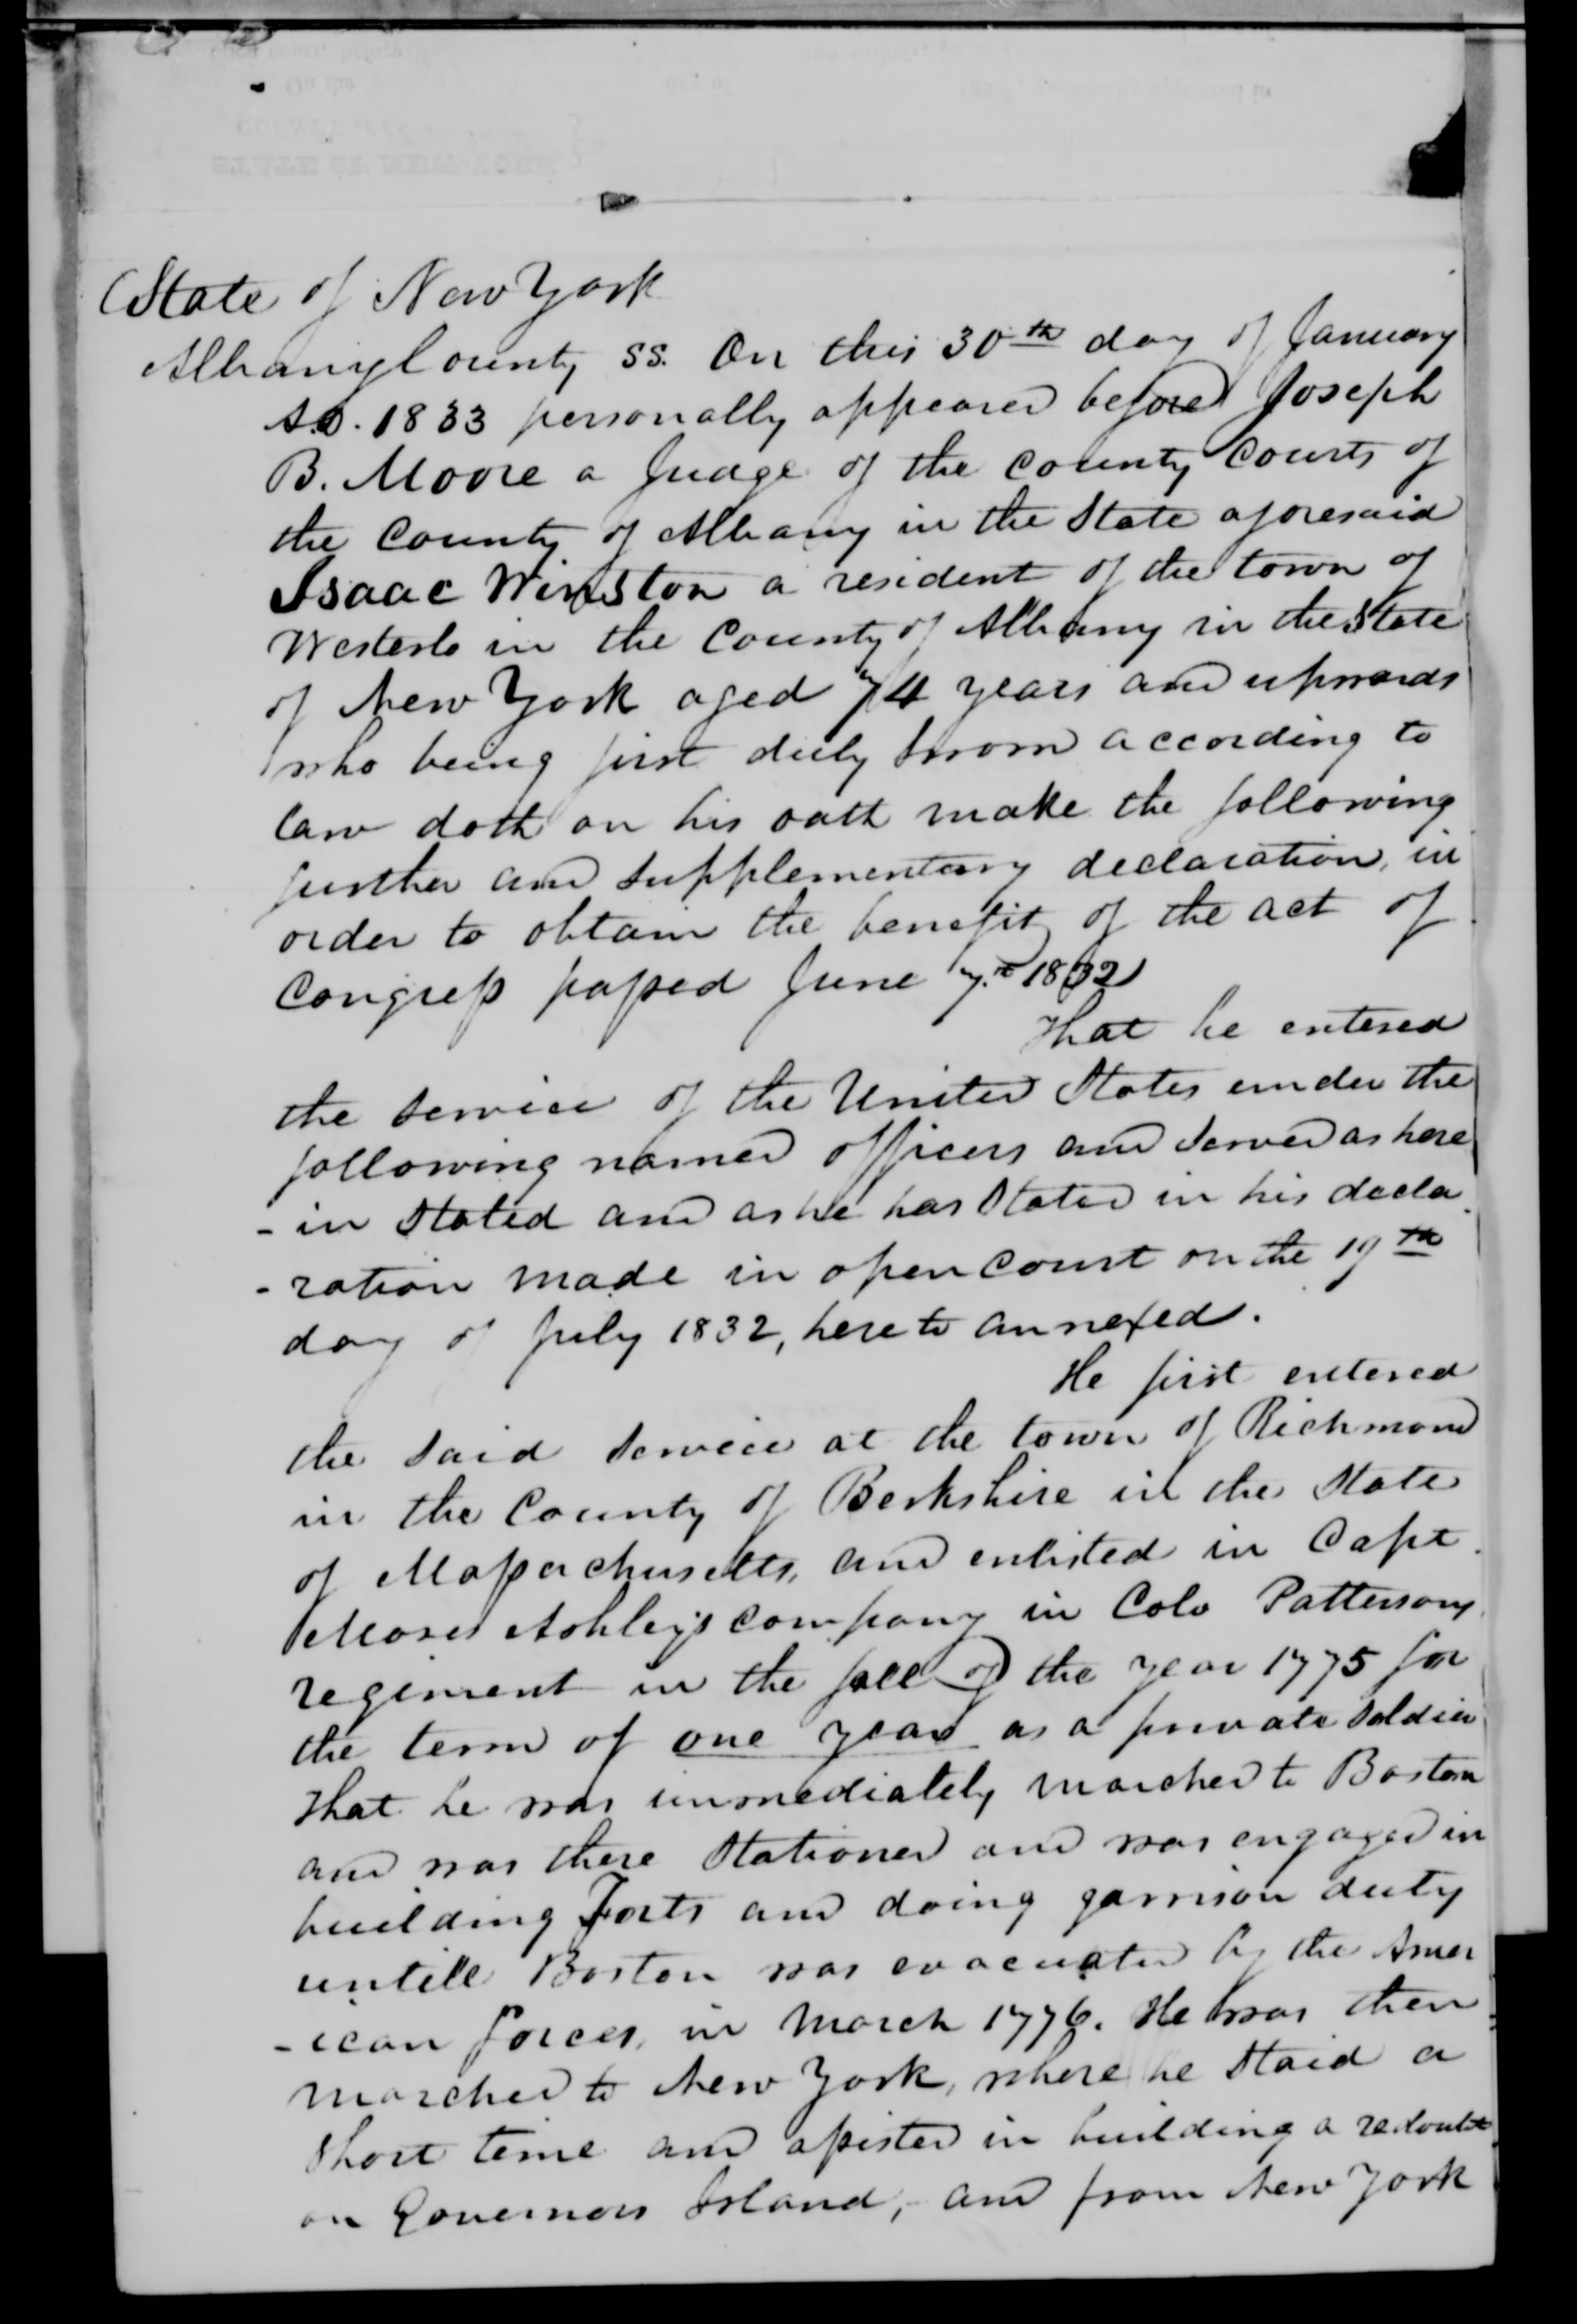 State of New York
Albany County ss. On this 30th day of January
A.D. 1833 personally appeared before Joseph
B. Moore a Judge of the county courts of
the County of Albany in the State aforesaid
Isaac Winston a resident of the town of
Westerlo in the County of Albany in the State
of New York aged 74 years and upwards
who being first duly sworn according to
law doth on his oath make the following
further and supplementary declaration, in
order to obtain the benefit of the act of
Congress passed June 7th 1832
That he entered
the service of the United States under the
following named officers and served as here
- in stated and as he has stated in his decla
- ration made in open court on the 19th
day of July 1832, here to annexed.
He first entered
the said service at the town of Richmond
in the County of Berkshire in the State
of Massachusetts, and enlisted in Capt.
Moses Ashley's company in Colo Pattersons
regiment in the fall of the year 1775 for
the term of one year as a private soldier
that he was immediately marched to Boston
and was there stationed and was engaged in
building Forts and doing garrison duty
untill Boston was evacuated by the Amer
- ican forces, in March 1776. He was then
marched to New York, where he staid a
short time and assisted in building a redoubt
on Governors Island, and from New York